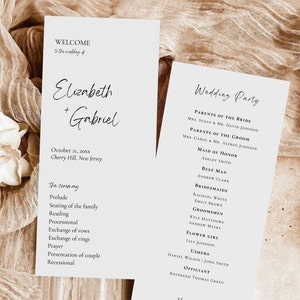 WELCOME
to the wedding of
Elizabeth
+
Gabriel
October 21, 20XX
Cherry Hill, New Jersey
the ceremony
Prelude
Seating of the family
Reading
Processional
Exchange of vows
Exchange of rings
Prayer
Presentation of couple
Recessional
Wedding Party
PARENTS OF THE BRIDE
MRS. SUSAN & MR. DAVID JOHNSON
PARENTS OF THE GROOM
MRS. CAROL & MR. ALFRED JOHNSON
MAID OF HONOR
ASHLEY SMITH
BEST MAN
ANDREW CLARK
BRIDESMAIDS
RACHAEL WHITE
EMILY BROWN
GROOMSMEN
KYLE MATTHEWS
ANDREW MYERS
FLOWER GIRL
LILY JOHNSON
USHERS
DANIEL WILSON | JOHN SMITH
OFFICIANT
REVEREND THOMAS GREEN